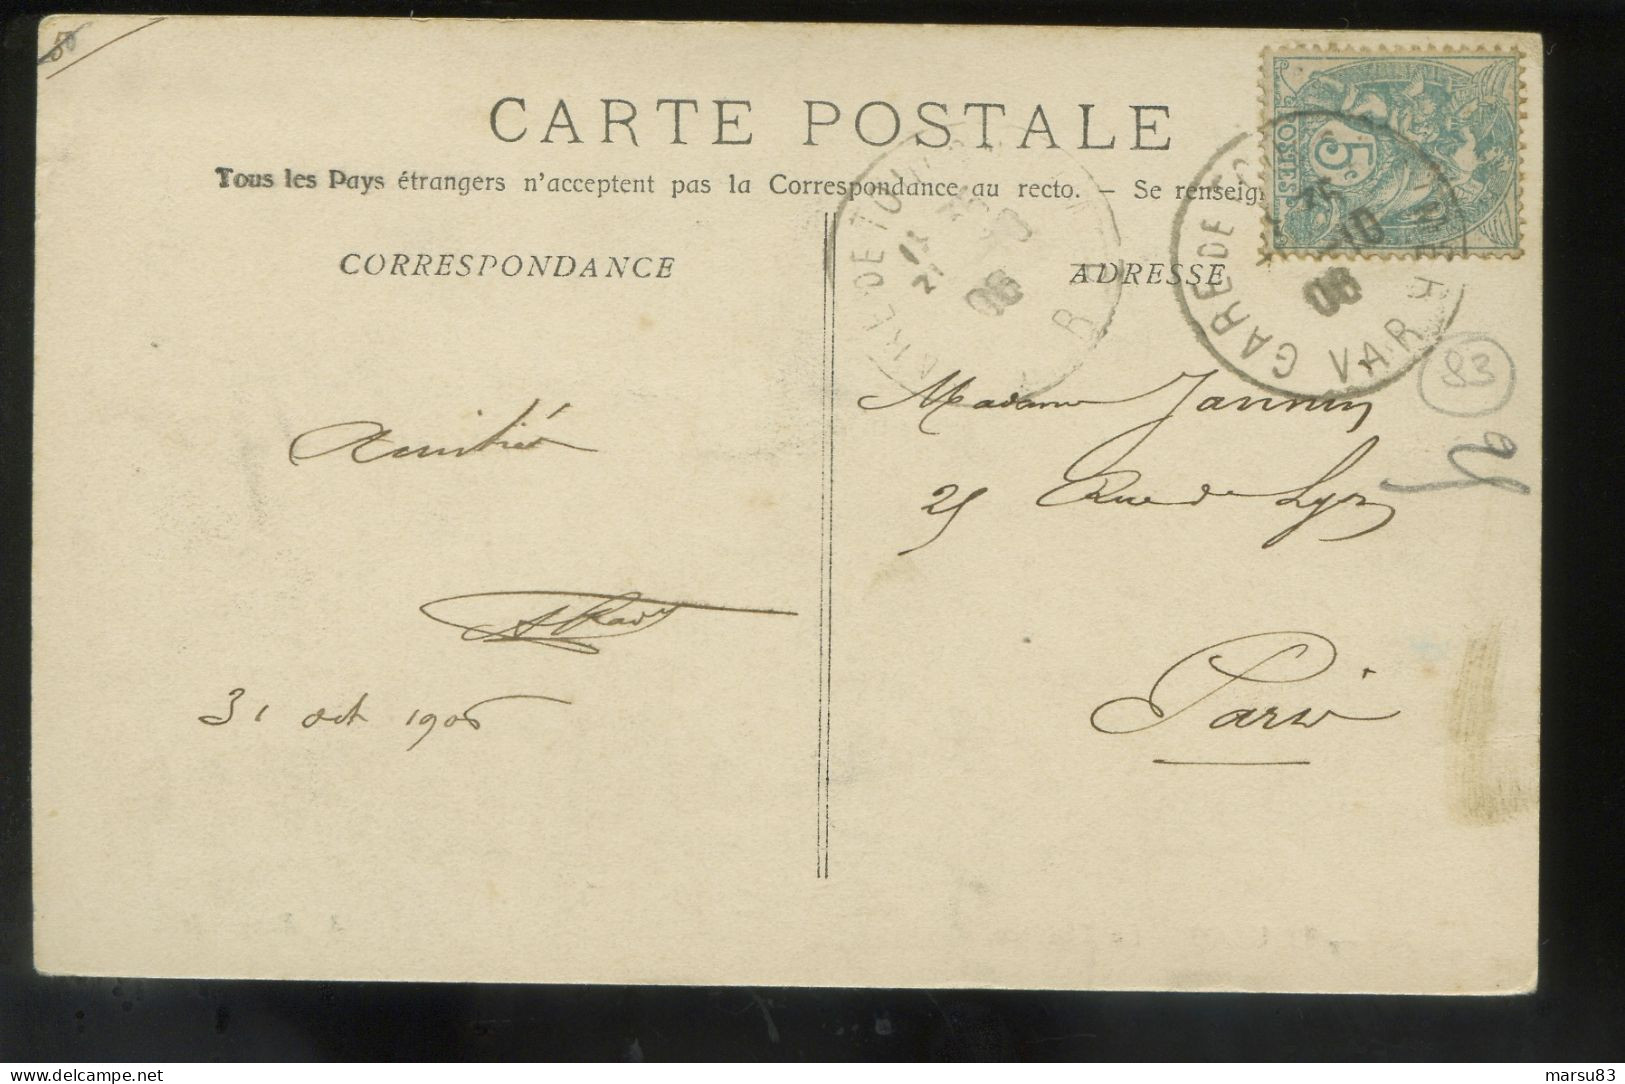 CARTE POSTALE
Tous les Pays étrangers n'acceptent pas la Correspondance au recto. — Se renseig
CORRESPONDANCE
ADRESSE
POSTES
5c
GARE DE
-10
06
VAR
GARE DE
06
Madame Jannin
25 Rue de Lyon
Paris
Amitiés
31 oct 1906
83
marsu83